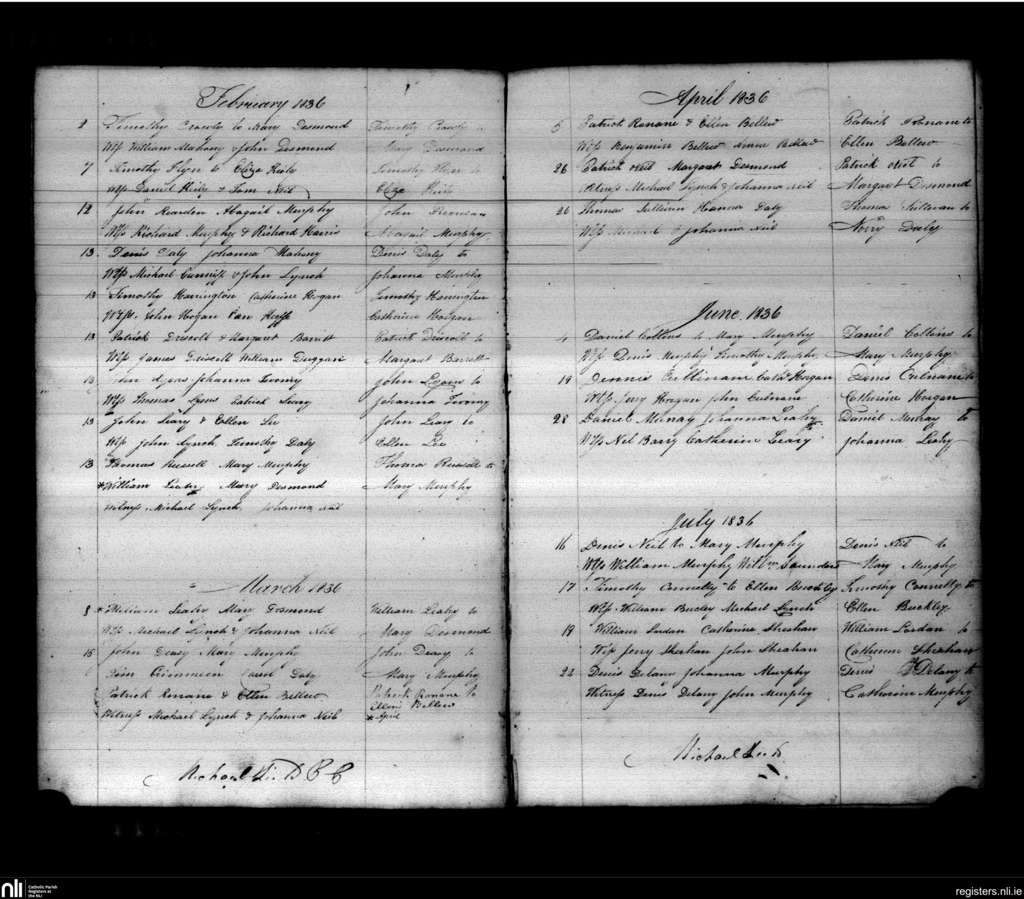 February 1836
2 Timothy Crowly to Mary Desmond Timothy Crowly to
Wss William Mahony & John Desmond Mary Desmond
7 Timothy Flyn to Eliza Timothy Flyn to
Wss Daniel & Neil Eliza
12 John Rearden Abagail Murphy John
Wss Richard Murphy & Richard Harris Murphy
13 Denis Daly Johanna Mahony Denis Daly to
Wss Michael & John Lynch Johanna Murphy
13 Timothy Harrington Catherine Hogan Timothy Harrington
Wtss. John Hogan Catherine Horgan
13 Patrick Driscoll & Margaret Barrett Patrick Driscoll to
Wss James Driscoll William Duggan Margaret Barrett
13 John Lyons Johanna Twomy John Lyons to
Wss Thomas Lyons Patrick Johanna Twomy
13 John Leary & Ellen John Leary to
Wss John Lynch Timothy Daly Ellen
13 Thomas Russell Mary Murphy Thomas Russell to
*William Leahy Mary Desmond Mary Murphy
Witness Michael Lynch. Johanna Neil
March 1836
8 *William Leahy Mary Desmond William Leahy to
Wss Michael Lynch & Johanna Neil Mary Desmond
15 John Deasy Mary Murphy John Deasy to
Daly Mary Murphy
Patrick Ronane & Ellen Bellew Patrick Ronane to
Ellen Bellew
Witness Michael Lynch & Johanna Neil * April
Michael C C
April 1836
5 Patrick Ronane & Ellen Bellew Patrick Ronane to
Wss Benjamin Bellew Bellew Ellen Bellew
26 Patrick Neil Margaret Desmond Patrick Neil to
Witness Michael Lynch & Johanna Neil Margaret Desmond
26 Thomas Sullivan Hanna Daly Thomas Sullivan to
Wss Michael Johanna Neil Nory Daly
June 1836
4 Daniel Collins to Mary Murphy Daniel Collins to
Wss Denis Murphy Timothy Murphy Mary Murphy
19 Dennis Cullinam Cath. Horgan Denis Culnane to
Wtss Jery Horgan John Culnane Catherine Horgan
28 Daniel Murray Johanna Leahy Daniel Murray to
Wss Neil Barry Catherine Leary Johanna Leahy
July 1836
16 Denis Neil to Mary Murphy Denis Neil to
Wss William Murphy Saunders Mary Murphy
17 Timothy Connelly to Ellen Buckley Timothy Connelly to
Wss William Bucley Michael Lynch Ellen Buckley
19 William Jordan Catherine Sheahan William Jordan to
Wss Jery Sheehan John Sheahan Catherine Sheahan
24 Denis Delany Johanna Murphy Denis Delany to
Witness Denis Delany John Murphy Catharine Murphy
Michael
nli
Catholic Parish
Registers at
the NLI
registers.nli.ie